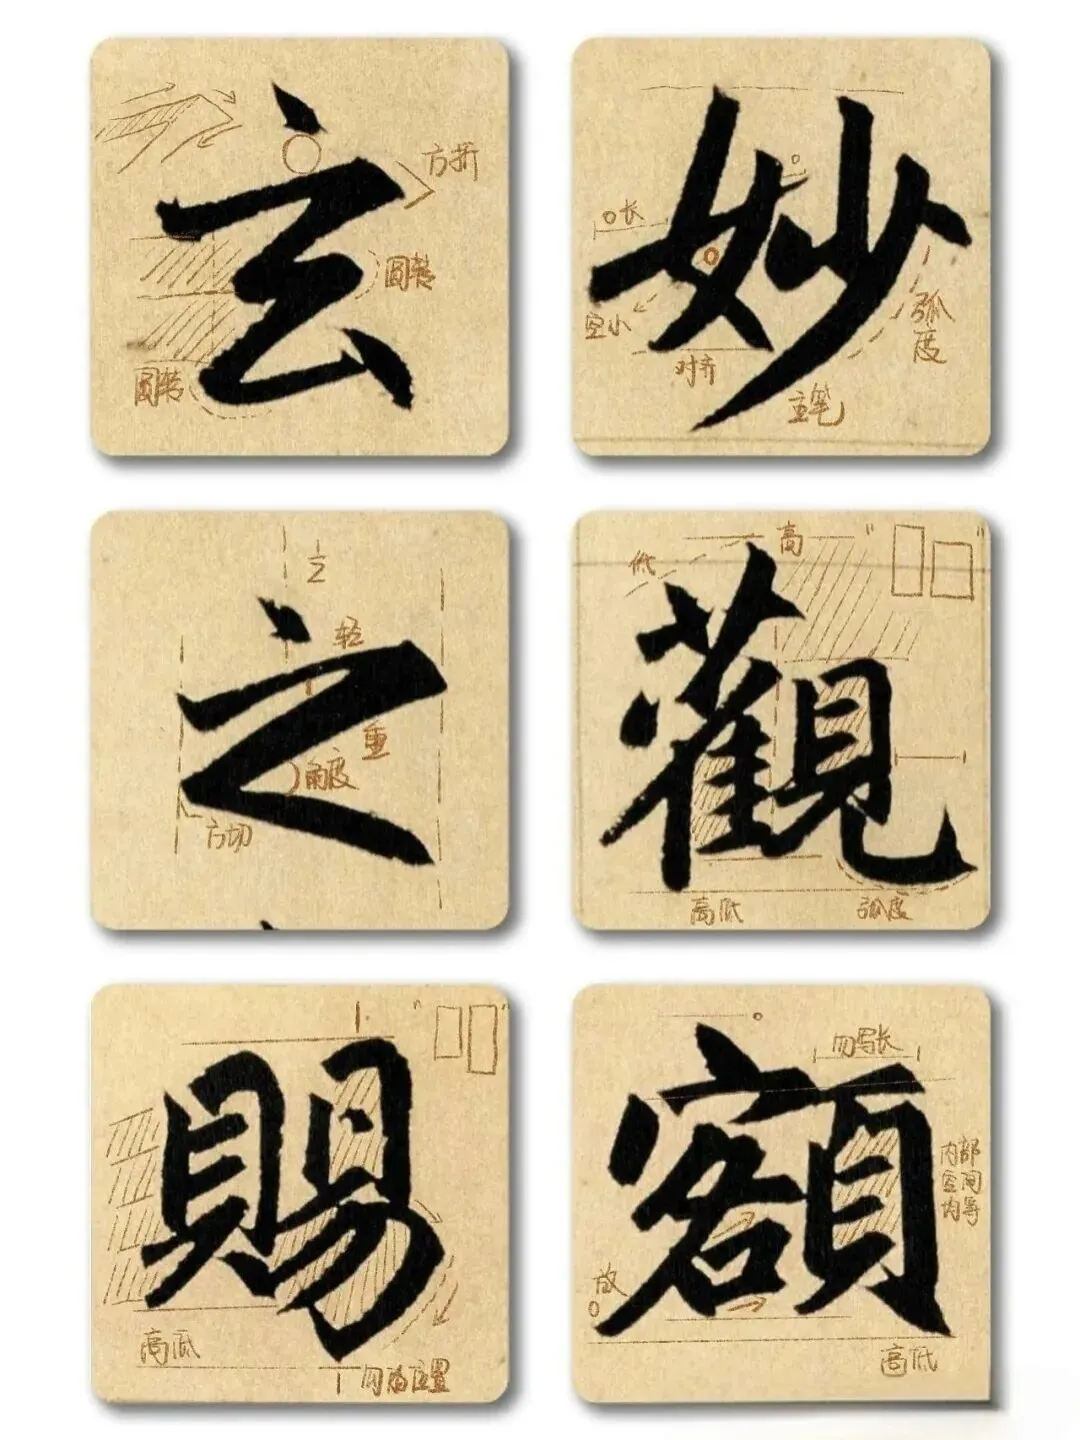 玄
方折
圆转
圆转
妙
长
空小
对齐
弧度
主笔
之
之
轻
重
角度
方切
觀
低
高
高低
弧度
賜
高低
勾的位置
額
勿写长
内部
空间
均等
放
高低